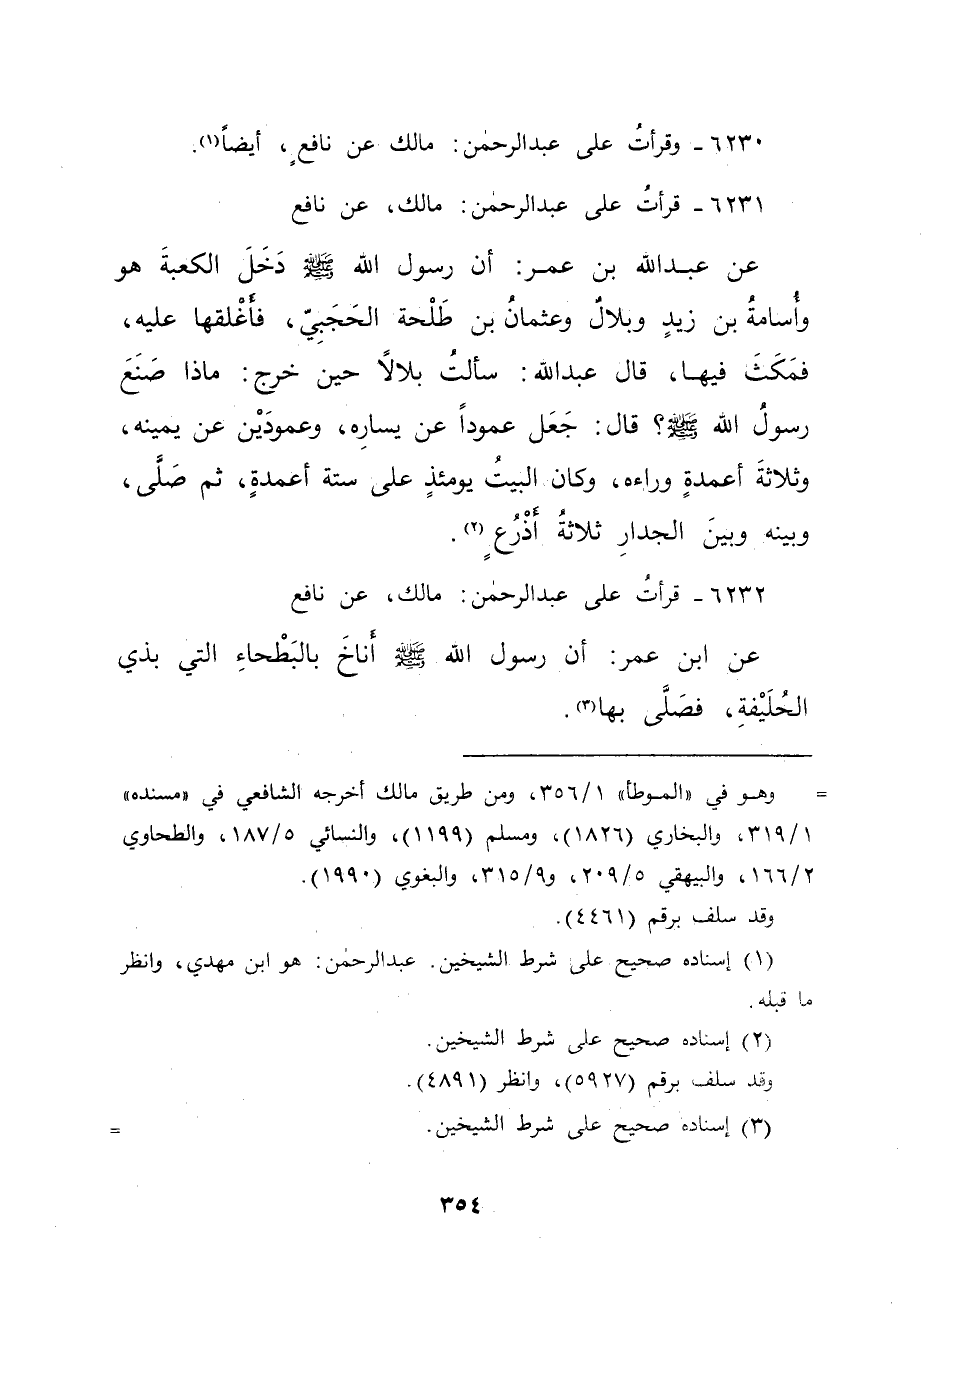 ٦٢٣٠ـ وقرأتُ على عبدالرحمٰن: مالك عن نافعٍ، أيضاً(١).
٦٢٣١ـ قرأتُ على عبدالرحمٰن: مالك، عن نافع
عن عبـدالله بن عمـر: أن رسول الله ﷺ دَخَلَ الكعبةَ هو
وأُسامةُ بن زيدٍ وبلالٌ وعثمانُ بن طَلْحة الحَجَبِيّ، فأَغْلقها عليه،
فمَكَثَ فيهـا، قال عبدالله: سألتُ بلالاً حين خرج: ماذا صَنَعَ
رسولُ الله ﷺ؟ قال: جَعَل عموداً عن يسارِه، وعمودَيْن عن يمينه،
وثلاثةَ أعمدةٍ وراءه، وكان البيتُ يومئذٍ على ستة أعمدةٍ، ثم صَلَّى،
وبينه وبينَ الجدارِ ثلاثةُ أَذْرُعٍ(٢).
٦٢٣٢ـ قرأتُ على عبدالرحمٰن: مالك، عن نافع
عن ابن عمر: أن رسول الله ﷺ أَناخَ بالبَطْحاءِ التي بذي
الحُلَيْفةِ، فصَلَّى بها(٣).
= وهـو في «المـوطأ» ٣٥٦/١، ومن طريق مالك أخرجه الشافعي في «مسنده»
٣١٩/١، والبخاري (١٨٢٦)، ومسلم (١١٩٩)، والنسائي ١٨٧/٥، والطحاوي
١٦٦/٢، والبيهقي ٢٠٩/٥، و٣١٥/٩، والبغوي (١٩٩٠).
وقد سلف برقم (٤٤٦١).
(١) إسناده صحيح على شرط الشيخين. عبدالرحمٰن: هو ابن مهدي، وانظر
ما قبله.
(٢) إسناده صحيح على شرط الشيخين.
وقد سلف برقم (٥٩٢٧)، وانظر (٤٨٩١).
(٣) إسناده صحيح على شرط الشيخين. =
٣٥٤